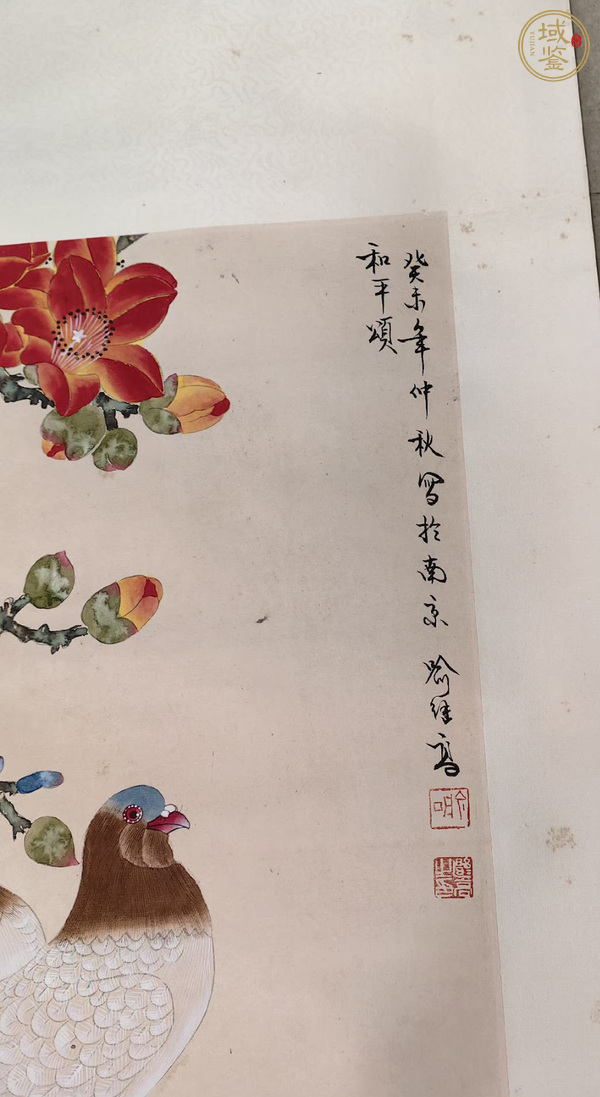 和平頌
癸未年仲秋写於南京 喻继高
域鉴
YUJIAN